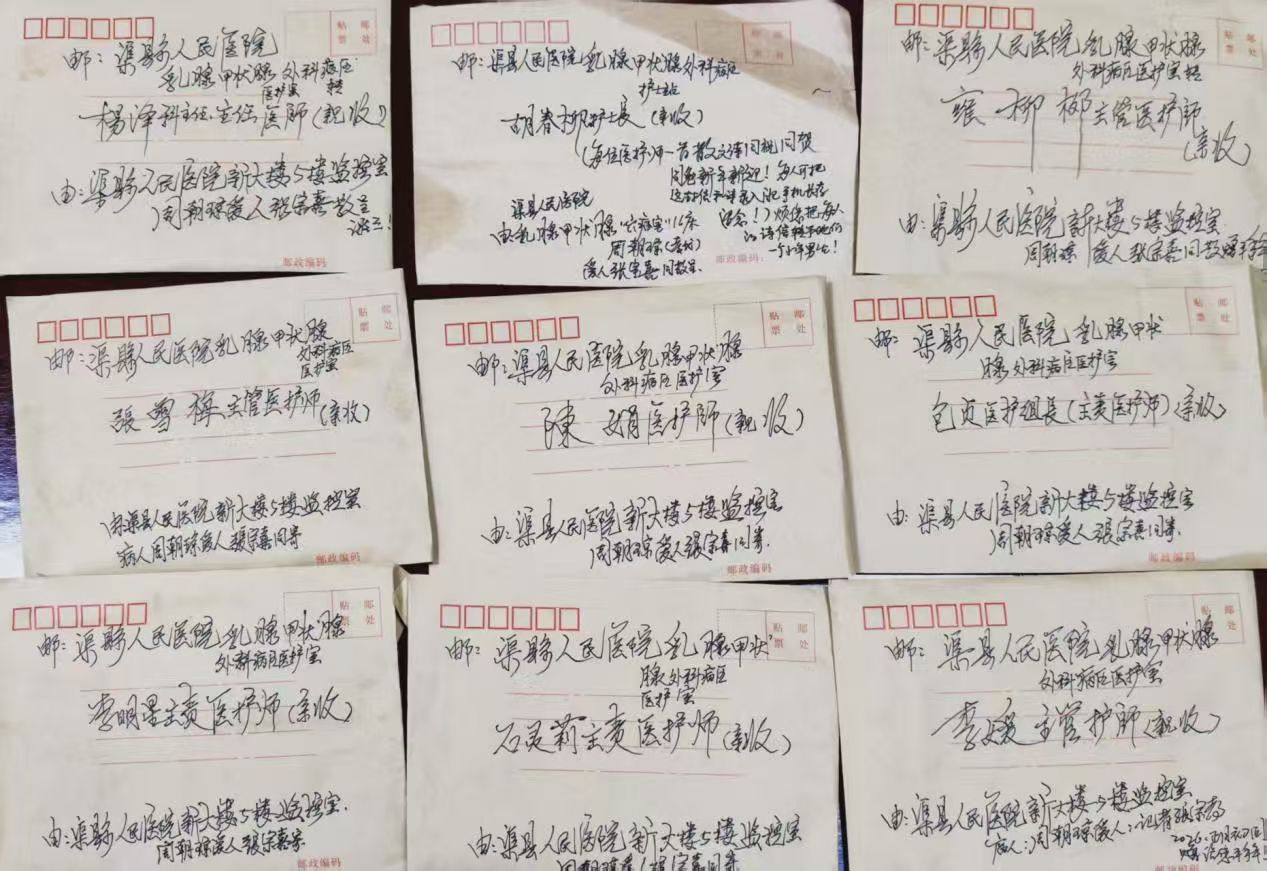 贴 邮
票 处
邮：渠縣人民医院
乳腺甲状腺外科病区
医护室 转
杨泽科主任.主任医师(親收)
由：渠縣人民医院新大楼5楼监控室
周朝琼爱人张宗熹敬呈
邮政编码
邮：渠县人民医院乳腺甲状腺外科病区
护士站
胡春柳护士長(亲收)
(每位医护师一首散文诗同祝同贺
渠县人民医院
由：乳腺甲状腺
周朝琼
爱人张宗熹同敬呈.
邮政编码：
贴 邮
票 处
邮：渠縣人民医院乳腺甲状腺
外科病区医护室转
柳 主管医护师
(亲收)
由：渠縣人民医院新大楼5楼监控室
周朝琼 爱人张宗熹同敬
贴 邮
票 处
邮：渠縣人民医院乳腺甲状腺
外科病区
医护室
張雪梅主管医护师(亲收)
由:渠县人民医院新大楼5楼监控室
病人周朝琼爱人张宗熹同寄
邮政编码
贴 邮
票 处
邮：渠縣人民医院乳腺甲状腺
外科病区医护室
陳 娟医护师(親收)
由：渠县人民医院新大楼5楼监控室
周朝琼爱人张宗熹同寄.
邮政编码
贴 邮
票 处
邮：渠县人民医院乳腺甲状
腺外科病区医护室
包贞医护组長(主责医护师)(亲收)
由：渠县人民医院新大楼5楼监控室
周朝琼爱人张宗熹同寄.
邮政编码
贴 邮
票 处
邮：渠縣人民医院乳腺甲状腺
外科病区医护室
李明星主责医护师(亲收)
由：渠縣人民医院新大楼5楼监控室.
周朝琼爱人张宗熹寄
邮政编码
贴 邮
票 处
邮：渠县人民医院乳腺甲状
腺外科病区
医护室
石灵莉主责医护师(亲收)
由：渠县人民医院新大楼5楼监控室
周朝琼爱人张宗熹同寄
贴 邮
票 处
邮：渠县人民医院乳腺甲状腺
外科病区医护室
李媛主管护师(親收)
由：渠县人民医院新大楼5楼监控室
病人：周朝琼爱人：记者张宗熹
邮政编码